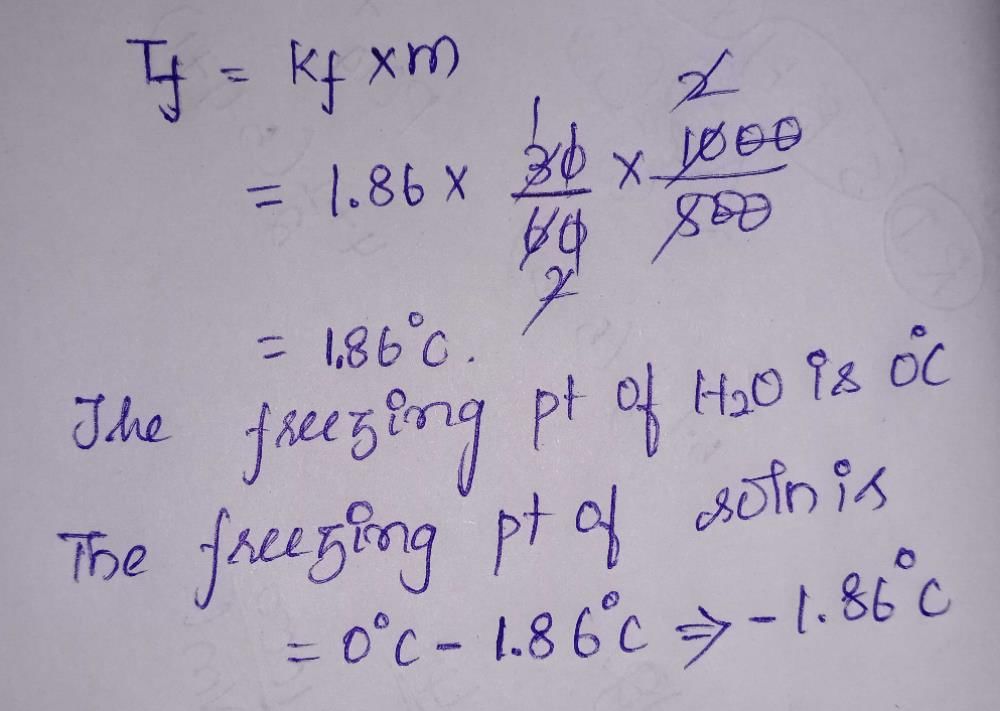 Tf = Kf x m
= 1.86 x 30/60 x 1000/500
= 1.86°C.
The freezing pt of H2O is 0°C
The freezing pt of soln is
= 0°C - 1.86°C ⇒ -1.86°C